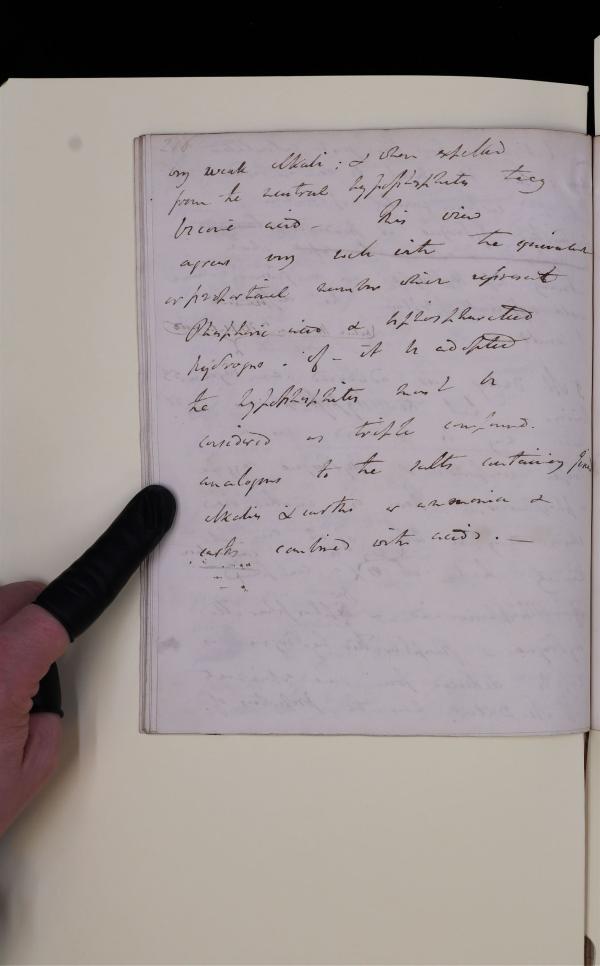 very weak Alkali: & when expelled
from the neutral hypophosphites they
become acid - This view
agrees very well with the equivalent
or proportional number which represent
Phosphoric acid & biphosphuretted
hydrogene. If - it be adopted
the hypophosphites must be
considered as triple compound.
analogous to the salts containing fixed
Alkalis & earths or ammonia &
earths combined with acids. -